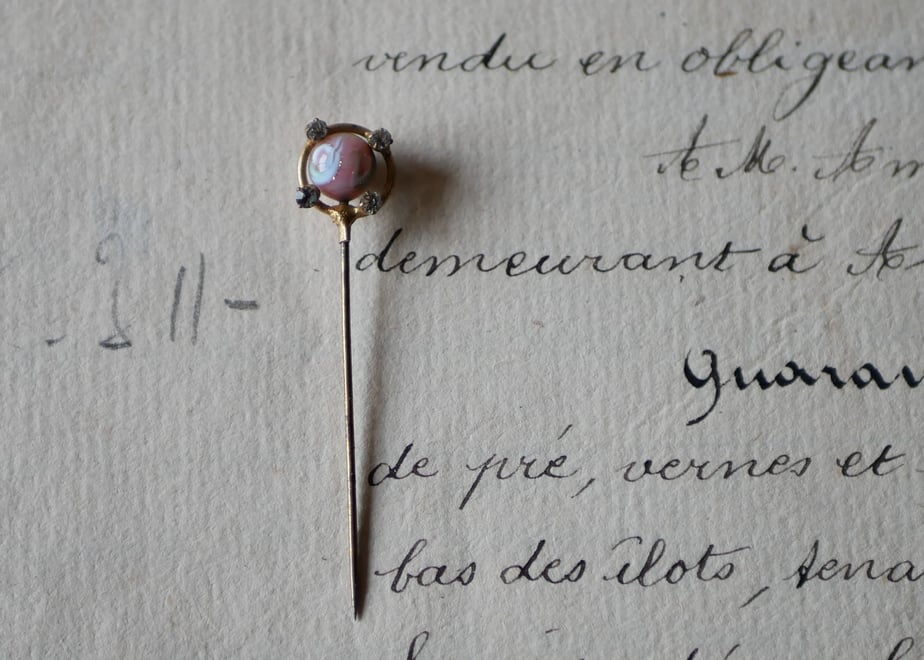 vendu en obligean
A M. Am
demeurant à A
II -
Quaran
de pré, vernes et
bas des îlots, tena